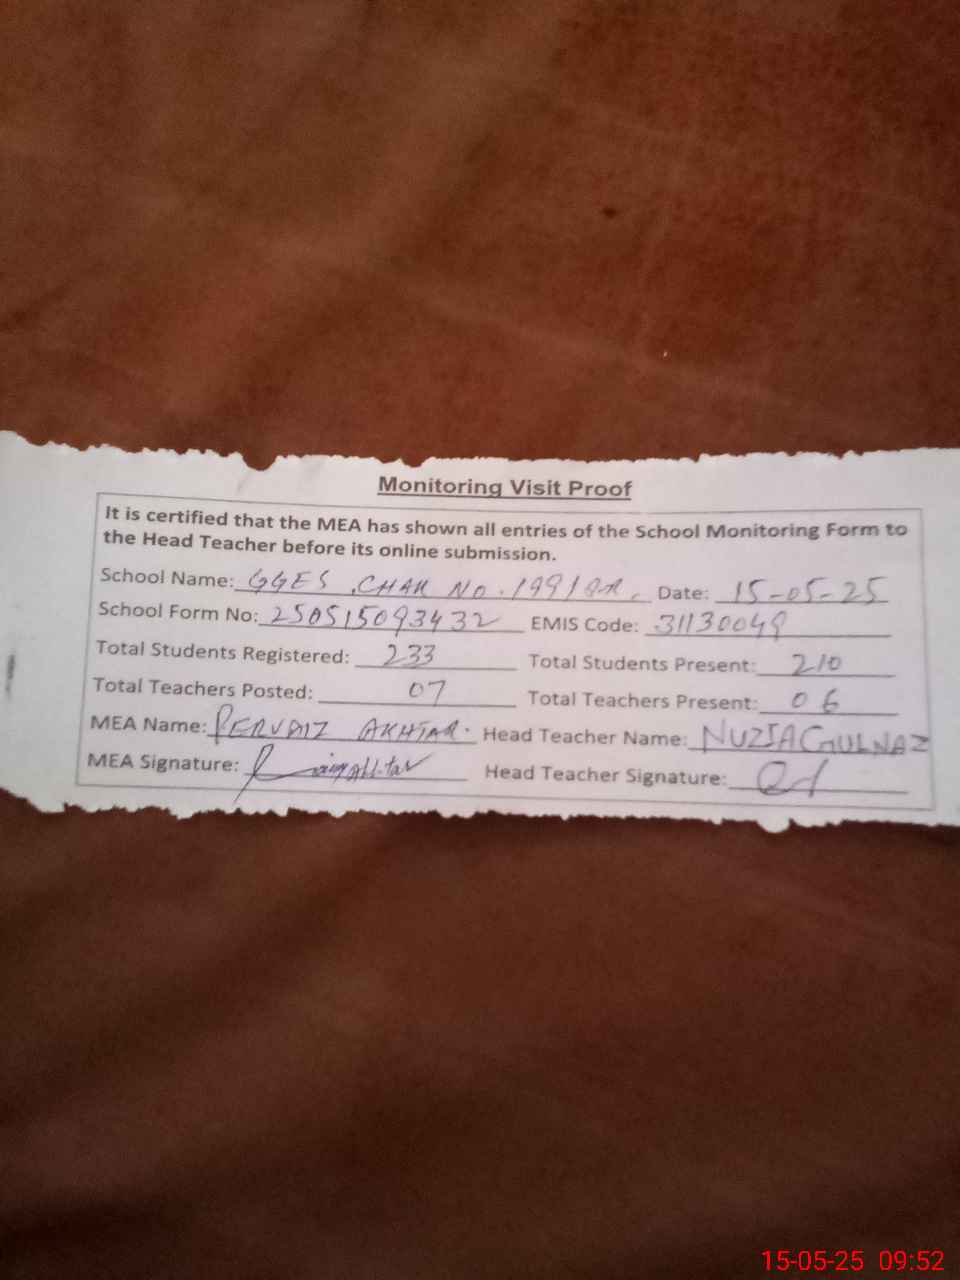 Monitoring Visit Proof
It is certified that the MEA has shown all entries of the School Monitoring Form to
the Head Teacher before its online submission.
School Name: GGES, CHAK NO. 199/9R, Date: 15-05-25
School Form No: 250515093432 EMIS Code: 31130049
Total Students Registered: 233 Total Students Present: 210
Total Teachers Posted: 07 Total Teachers Present: 06
MEA Name: PERVAIZ AKHTAR. Head Teacher Name: NUZIA GULNAZ
MEA Signature: Head Teacher Signature:
15-05-25 09:52